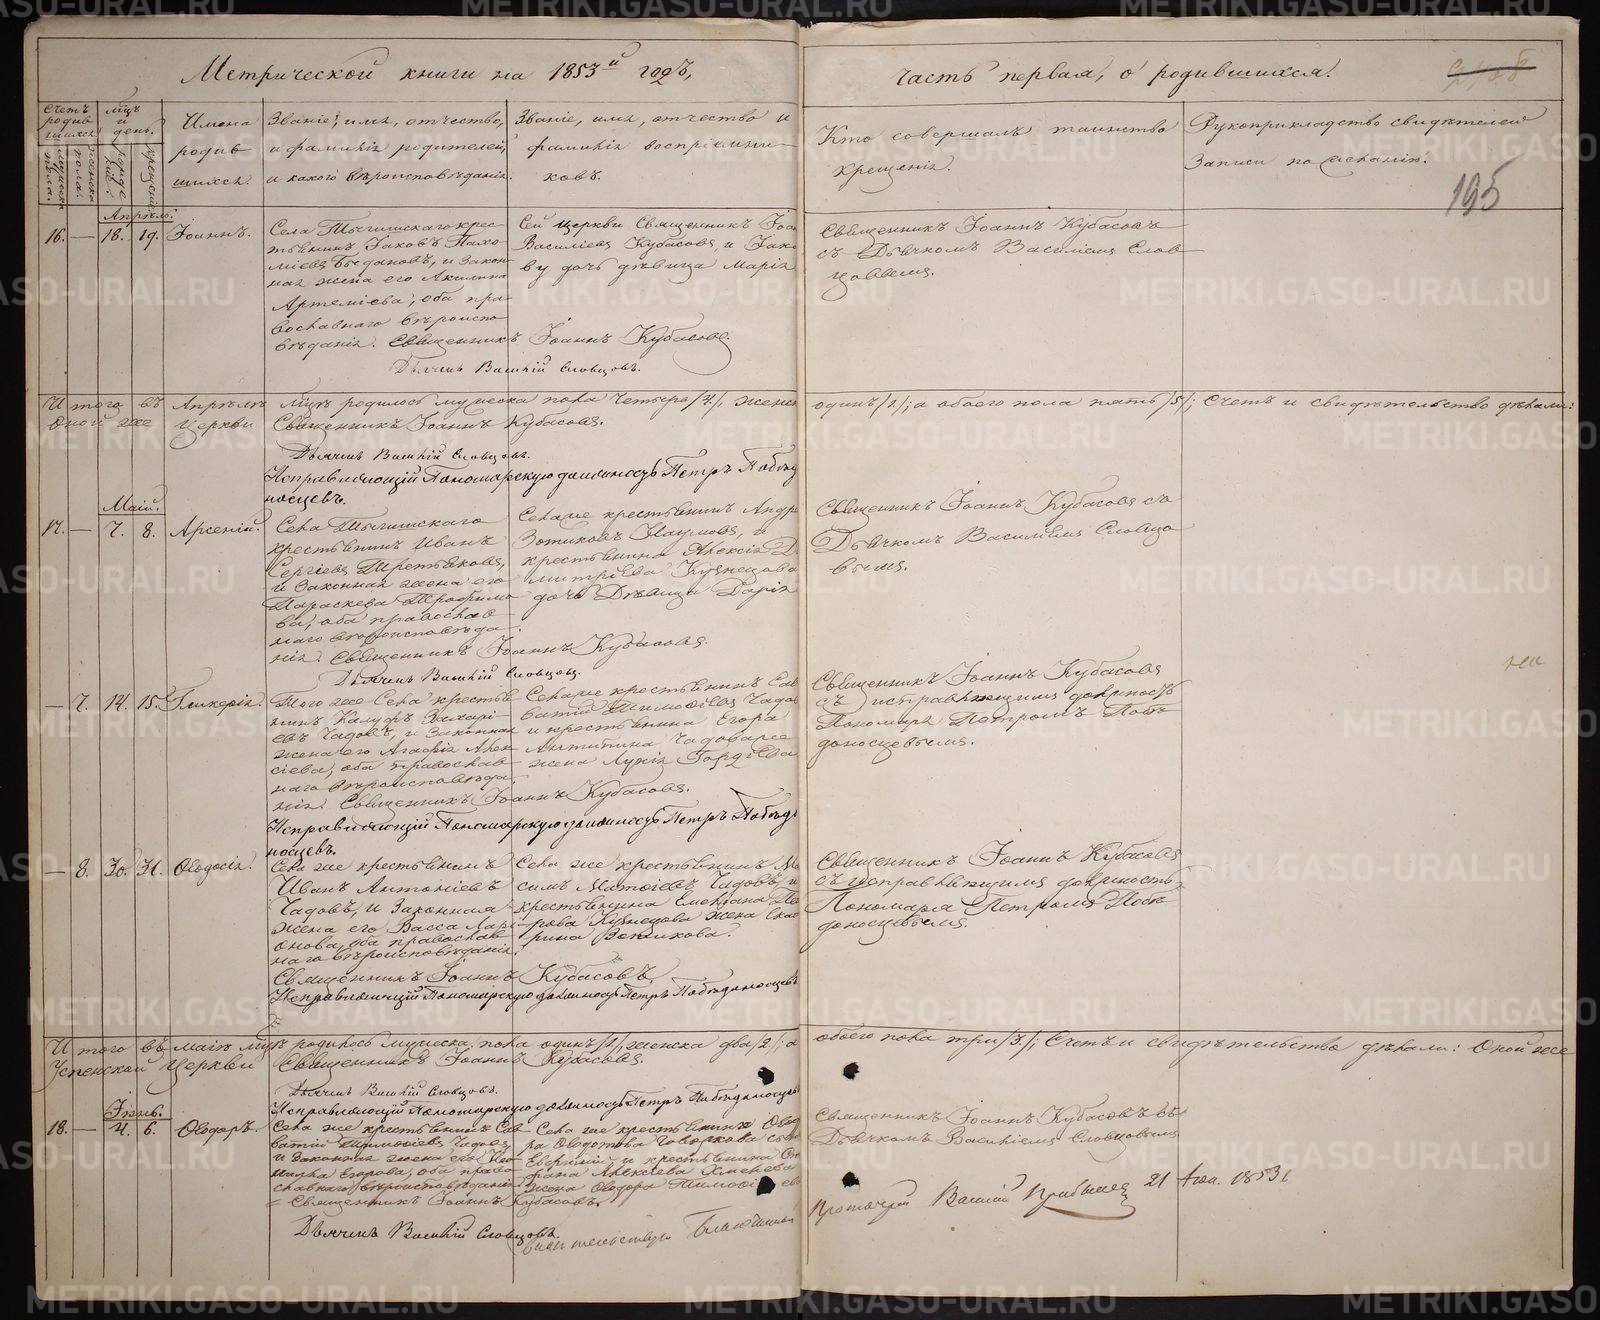 Метрической книги на 1853й годъ,
часть первая, о родившихся.
195
Счетъ родив шихся
мужеска пола.
женска пола.
Мѣц и день.
рожде нія.
крещенія.
Имена родив шихся.
Званіе, имя, отчество, и фамилія родителей, и какого вѣроисповѣданія.
Званіе, имя, отчество и фамилія воспріемни ковъ.
Кто совершалъ таинство крещенія.
Рукоприкладство свидѣтелей записи по желанію.
Апрѣль.
16. — 18. 19. Іоаннъ.
Села крес
тьянинъ Іаковъ Пахо
міевъ Богдановъ, и закон
ная жена его Акилина
Артеміева, оба пра
вославнаго вѣроиспо
вѣданія. Священникъ Іоаннъ Кубасовъ.
Дьячекъ Василій Словцовъ.
Сей церкви Священникъ
Василіевъ Кубасовъ, и
ву дочь дѣвица Марія
Священникъ Іоаннъ Кубасовъ
съ Дьячкомъ Василіемъ Слов
цовымъ.
Итого въ Апрѣлѣ мцѣ родилось мужеска пола четыре /4/, женск
одинъ /1/; а обоего пола пять /5/; Счетъ и свидѣтельство дѣлали:
Оной же Церкви Священникъ Іоаннъ Кубасовъ.
Дьячекъ Василій Словцовъ.
Исправляющій Пономарскую должность Петръ Побѣдо
носцевъ.
Маій.
17. — 7. 8. Арсеній.
Села
крестьянинъ Иванъ
Сергіевъ Третьяковъ,
и законная жена его
Параскева Трофимо
ва, оба православ
наго вѣроисповѣда
нія. Священникъ Іоаннъ Кубасовъ.
Дьячекъ Василій Словцовъ.
Села же крестьянинъ Андре
Зотиковъ Наумовъ, и
крестьянина Алексія Д
митріева Кузнецова
дочь Дѣвица Дарія
Священникъ Іоаннъ Кубасовъ съ
Дьячкомъ Василіемъ Словцо
вымъ.
— 7. 14. 15. Гликерія.
Того же Села крестья
нинъ Калуфъ Захарі
евъ Чадовъ, и законная
жена его Агафія Алек
сіева, оба православ
наго вѣроисповѣда
нія. Священникъ Іоаннъ Кубасовъ.
Исправляющій Пономарскую должность Петръ Побѣдо
носцевъ.
Села же крестьянинъ Сав
ватій Тимофіевъ Чадов
и крестьянина Егора
Антипина Чадова же
жена Лукія Гордіева
Священникъ Іоаннъ Кубасовъ
съ исправляющимъ должность
Пономаря Петромъ Побѣ
доносцевымъ.
— 8. 30. 31. Ѳеодосія.
Села же крестьянинъ
Иванъ Антоніевъ
Чадовъ, и законная
жена его Васса Лари
онова, оба православ
наго вѣроисповѣданія.
Священникъ Іоаннъ Кубасовъ
Исправляющій Пономарскую должность Петръ Побѣдоносцевъ
Села же крестьянинъ Ма
симъ Матфіевъ Чадовъ, и
крестьянина Емеліана Пе
трова Кузнецова жена Ека
рина
Священникъ Іоаннъ Кубасовъ
съ исправляющимъ должность
Пономаря Петромъ Побѣ
доносцевымъ.
Итого въ маіѣ мцѣ родилось мужеска пола одинъ /1/ женска два /2/; а
обоего пола три /3/; Счетъ и свидѣтельство дѣлали: Оной же
Успенской Церкви Священникъ Іоаннъ Кубасовъ.
Дьячекъ Василій Словцовъ.
Исправляющій Пономарскую должность Петръ Побѣдоносцевъ
Іюнь.
18. — 4. 6. Ѳеодоръ.
Села же крестьянинъ Сав
ватій Тимофіевъ Чадовъ
и законная жена его
Егорова, оба право
славнаго вѣроисповѣданія
Священникъ Іоаннъ Кубасовъ.
Дьячекъ Василій Словцовъ.
Села же крестьянинъ Ѳеодо
ра Ѳедотова сынъ
Евгеній и крестьянина
Алексіева
жена Ѳеодора Тимофі ев
Священникъ Іоаннъ Кубасовъ съ
Дьячкомъ Василіемъ Словцовымъ
Благочинный
Протоіерей Василій 21 1853 г
METRIKI.GASO-URAL.RU